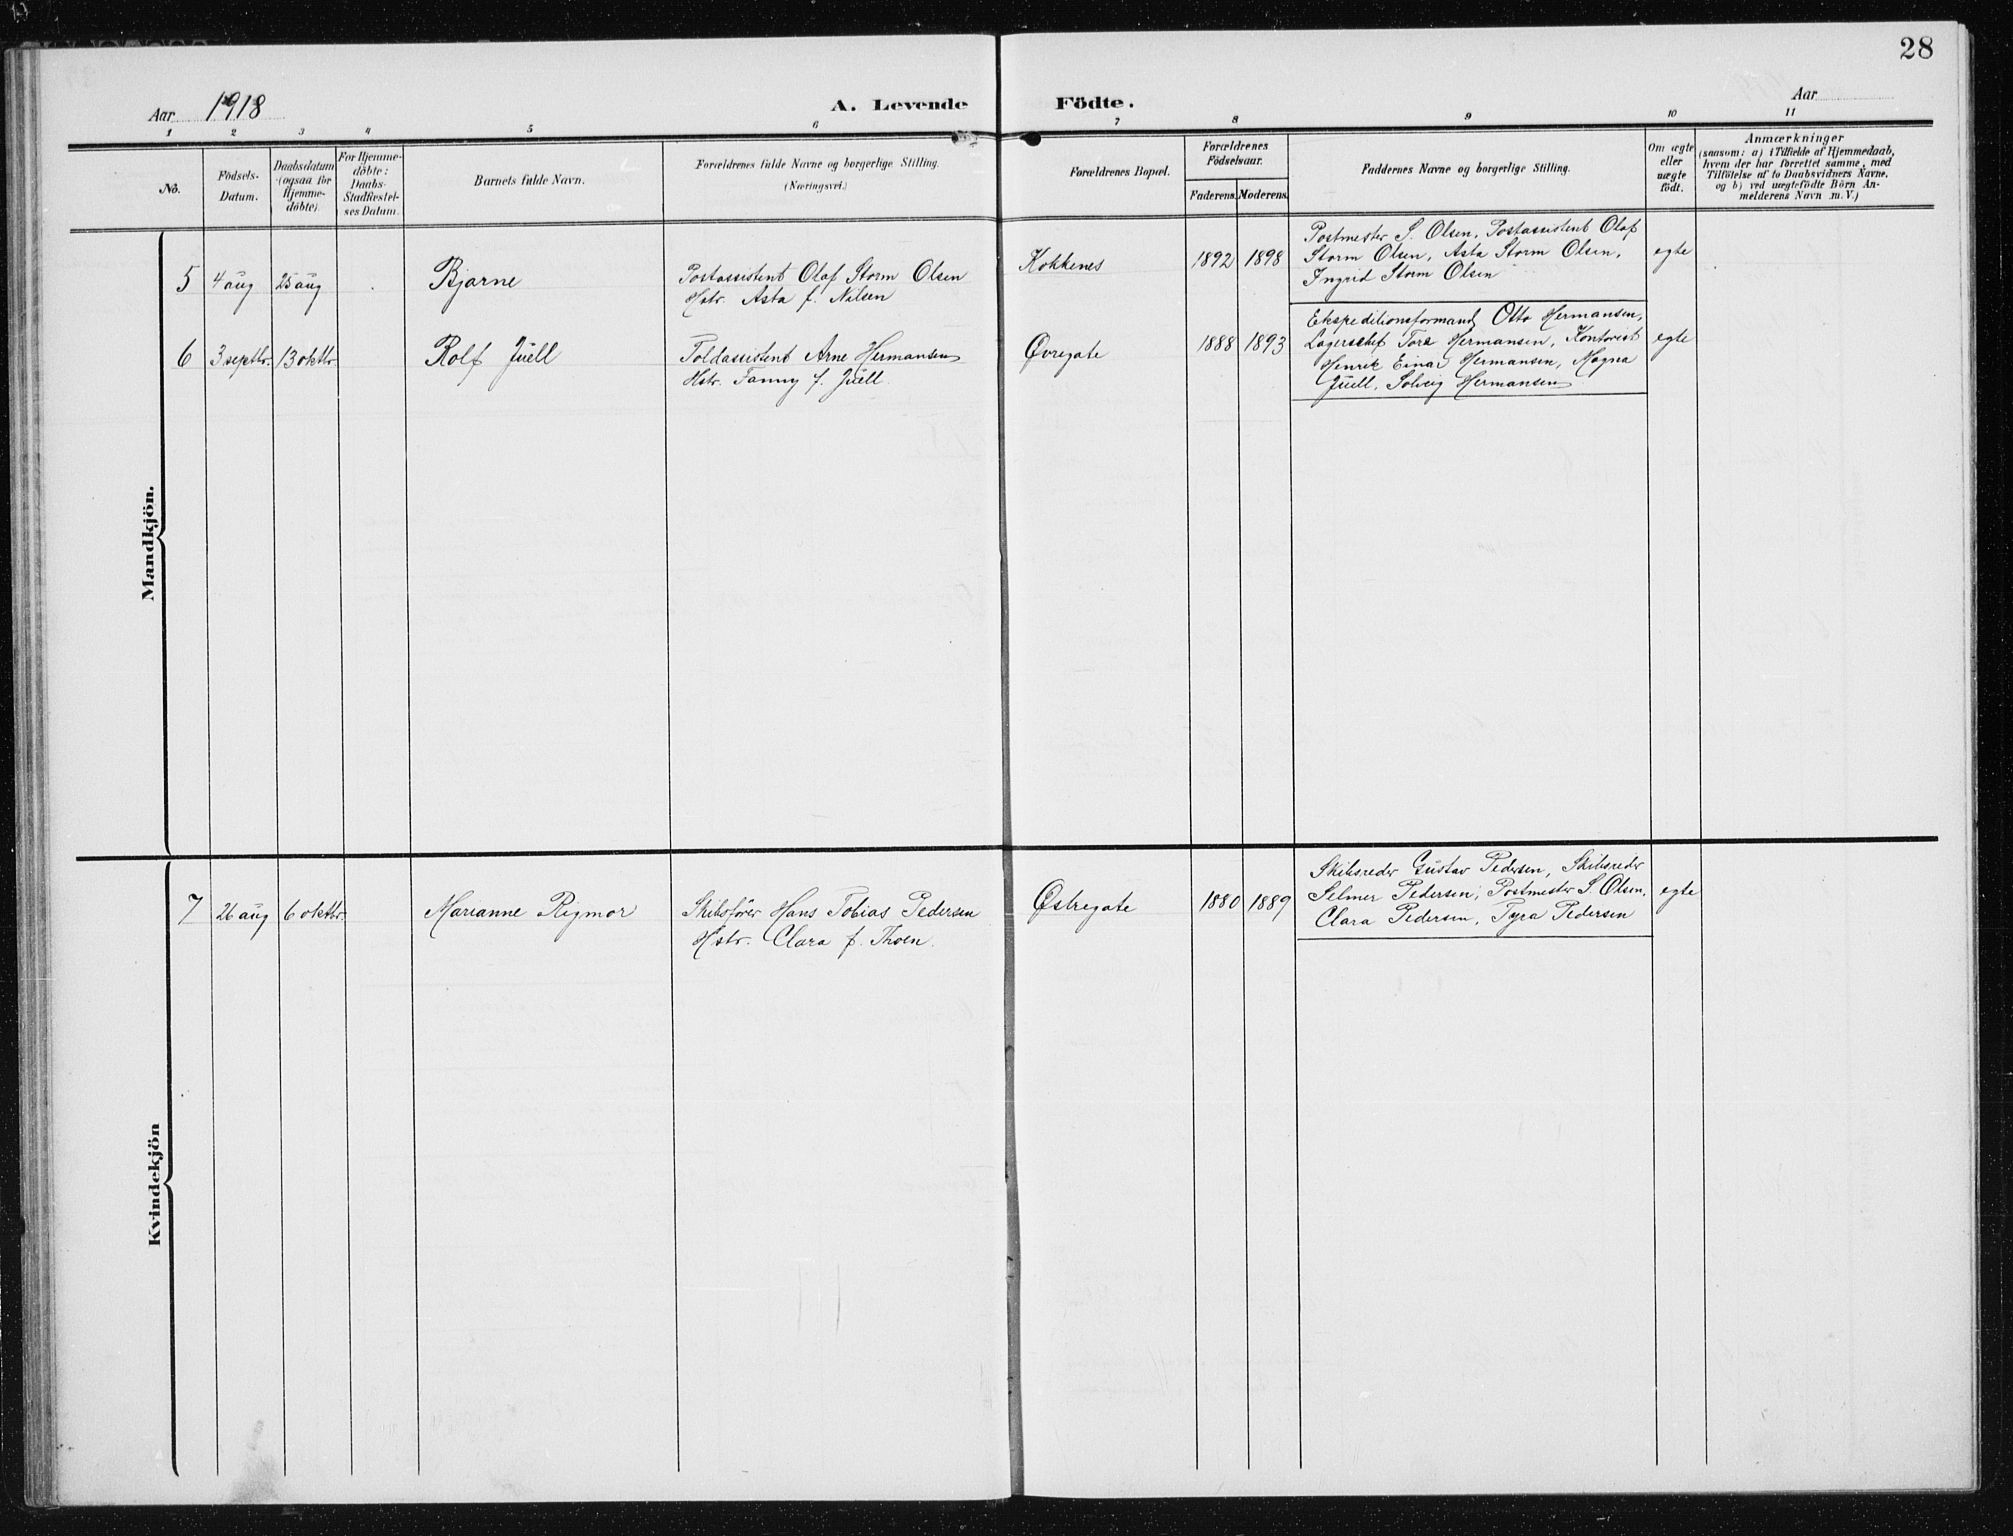 28
Aar 1918
A. Levende Födte.
Aar
1 2 3 4 5 6 7 8 9 10 11
No.
Födsels-
Datum.
Daabsdatum
(ogsaa for
Hjemme-
döbte).
For Hjemme-
döbte:
Daabs-
Stadfæstel-
ses Datum.
Barnets fulde Navn.
Forældrenes fulde Navne og borgerlige Stilling.
(Næringsvei.)
Forældrenes Bopæl.
Forældrenes
Födselsaar.
Faderens. Moderens.
Faddernes Navne og borgerlige Stilling.
Om ægte
eller
uægte
födt.
Anmærkninger
(saasom: a) i Tilfælde af Hjemmedaab,
hvem der har forrettet samme, med
Tilföielse af to Daabsvidners Navne,
og b) ved uægtefödte Börn An-
melderens Navn m. V.)
Mandkjön.
5 4 aug 25 aug Bjarne
Postassistent Olaf Storm Olsen
Hstr. Asta f. Nilsen
Kokkenes 1892 1898
Postmester S. Olsen, Postassistent Olaf
Storm Olsen, Asta Storm Olsen,
Ingrid Storm Olsen
egte
6 3 septbr. 13 oktbr. Rolf Juell
Toldassistent Arne Hermansen
Hstr. Fanny f. Juell
Øvregate 1888 1893
Ekspeditionsformand Otto Hermansen,
Lagerschef Tore Hermansen, Kontorist
Henrik Einar Hermansen, Magna
Juell, Solveig Hermansen
egte
Kvindekjön
7 26 aug 6 oktbr. Marianne Rigmor
Skibsfører Hans Tobias Pedersen
Hstr. Clara f. Thoen.
Østregate 1880 1889
Skibsreder Gustav Pedersen, Skibsreder
Selmer Pedersen, Postmester S. Olsen,
Clara Pedersen, Tyra Pedersen
egte